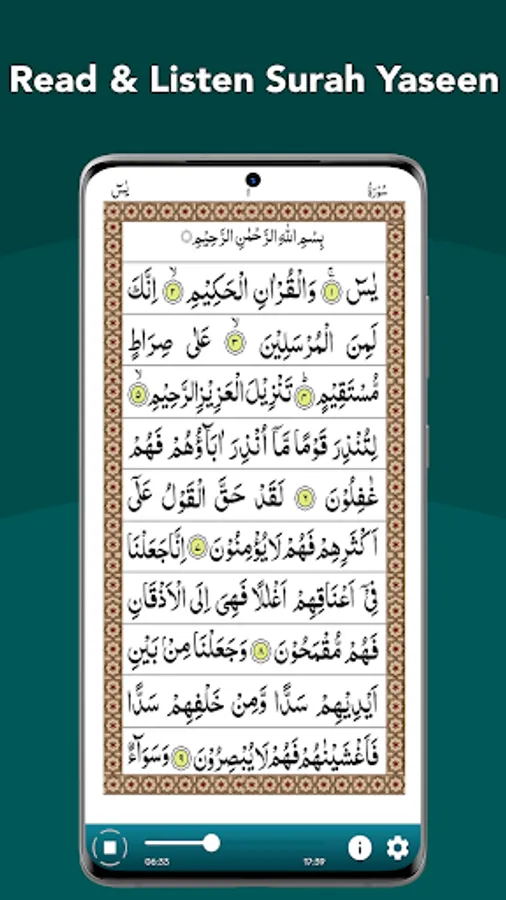 Read & Listen Surah Yaseen
سُوْرَةُ ١ يٰسٓ
بِسْمِ اللّٰهِ الرَّحْمٰنِ الرَّحِيْمِ
يٰسٓ ۚ ﴿١﴾ وَالْقُرْاٰنِ الْحَكِيْمِ ۙ ﴿٢﴾ اِنَّكَ
لَمِنَ الْمُرْسَلِيْنَ ۙ ﴿٣﴾ عَلٰى صِرَاطٍ
مُّسْتَقِيْمٍ ؕ ﴿٤﴾ تَنْزِيْلَ الْعَزِيْزِ الرَّحِيْمِ ۙ ﴿٥﴾
لِتُنْذِرَ قَوْمًا مَّاۤ اُنْذِرَ اٰبَآؤُهُمْ فَهُمْ
غٰفِلُوْنَ ﴿٦﴾ لَقَدْ حَقَّ الْقَوْلُ عَلٰۤى
اَكْثَرِهِمْ فَهُمْ لَا يُؤْمِنُوْنَ ﴿٧﴾ اِنَّا جَعَلْنَا
فِيْۤ اَعْنَاقِهِمْ اَغْلٰلًا فَهِىَ اِلَى الْاَذْقَانِ
فَهُمْ مُّقْمَحُوْنَ ﴿٨﴾ وَجَعَلْنَا مِنْۢ بَيْنِ
اَيْدِيْهِمْ سَدًّا وَّمِنْ خَلْفِهِمْ سَدًّا
فَاَغْشَيْنٰهُمْ فَهُمْ لَا يُبْصِرُوْنَ ﴿٩﴾ وَسَوَآءٌ
06:33 17:39